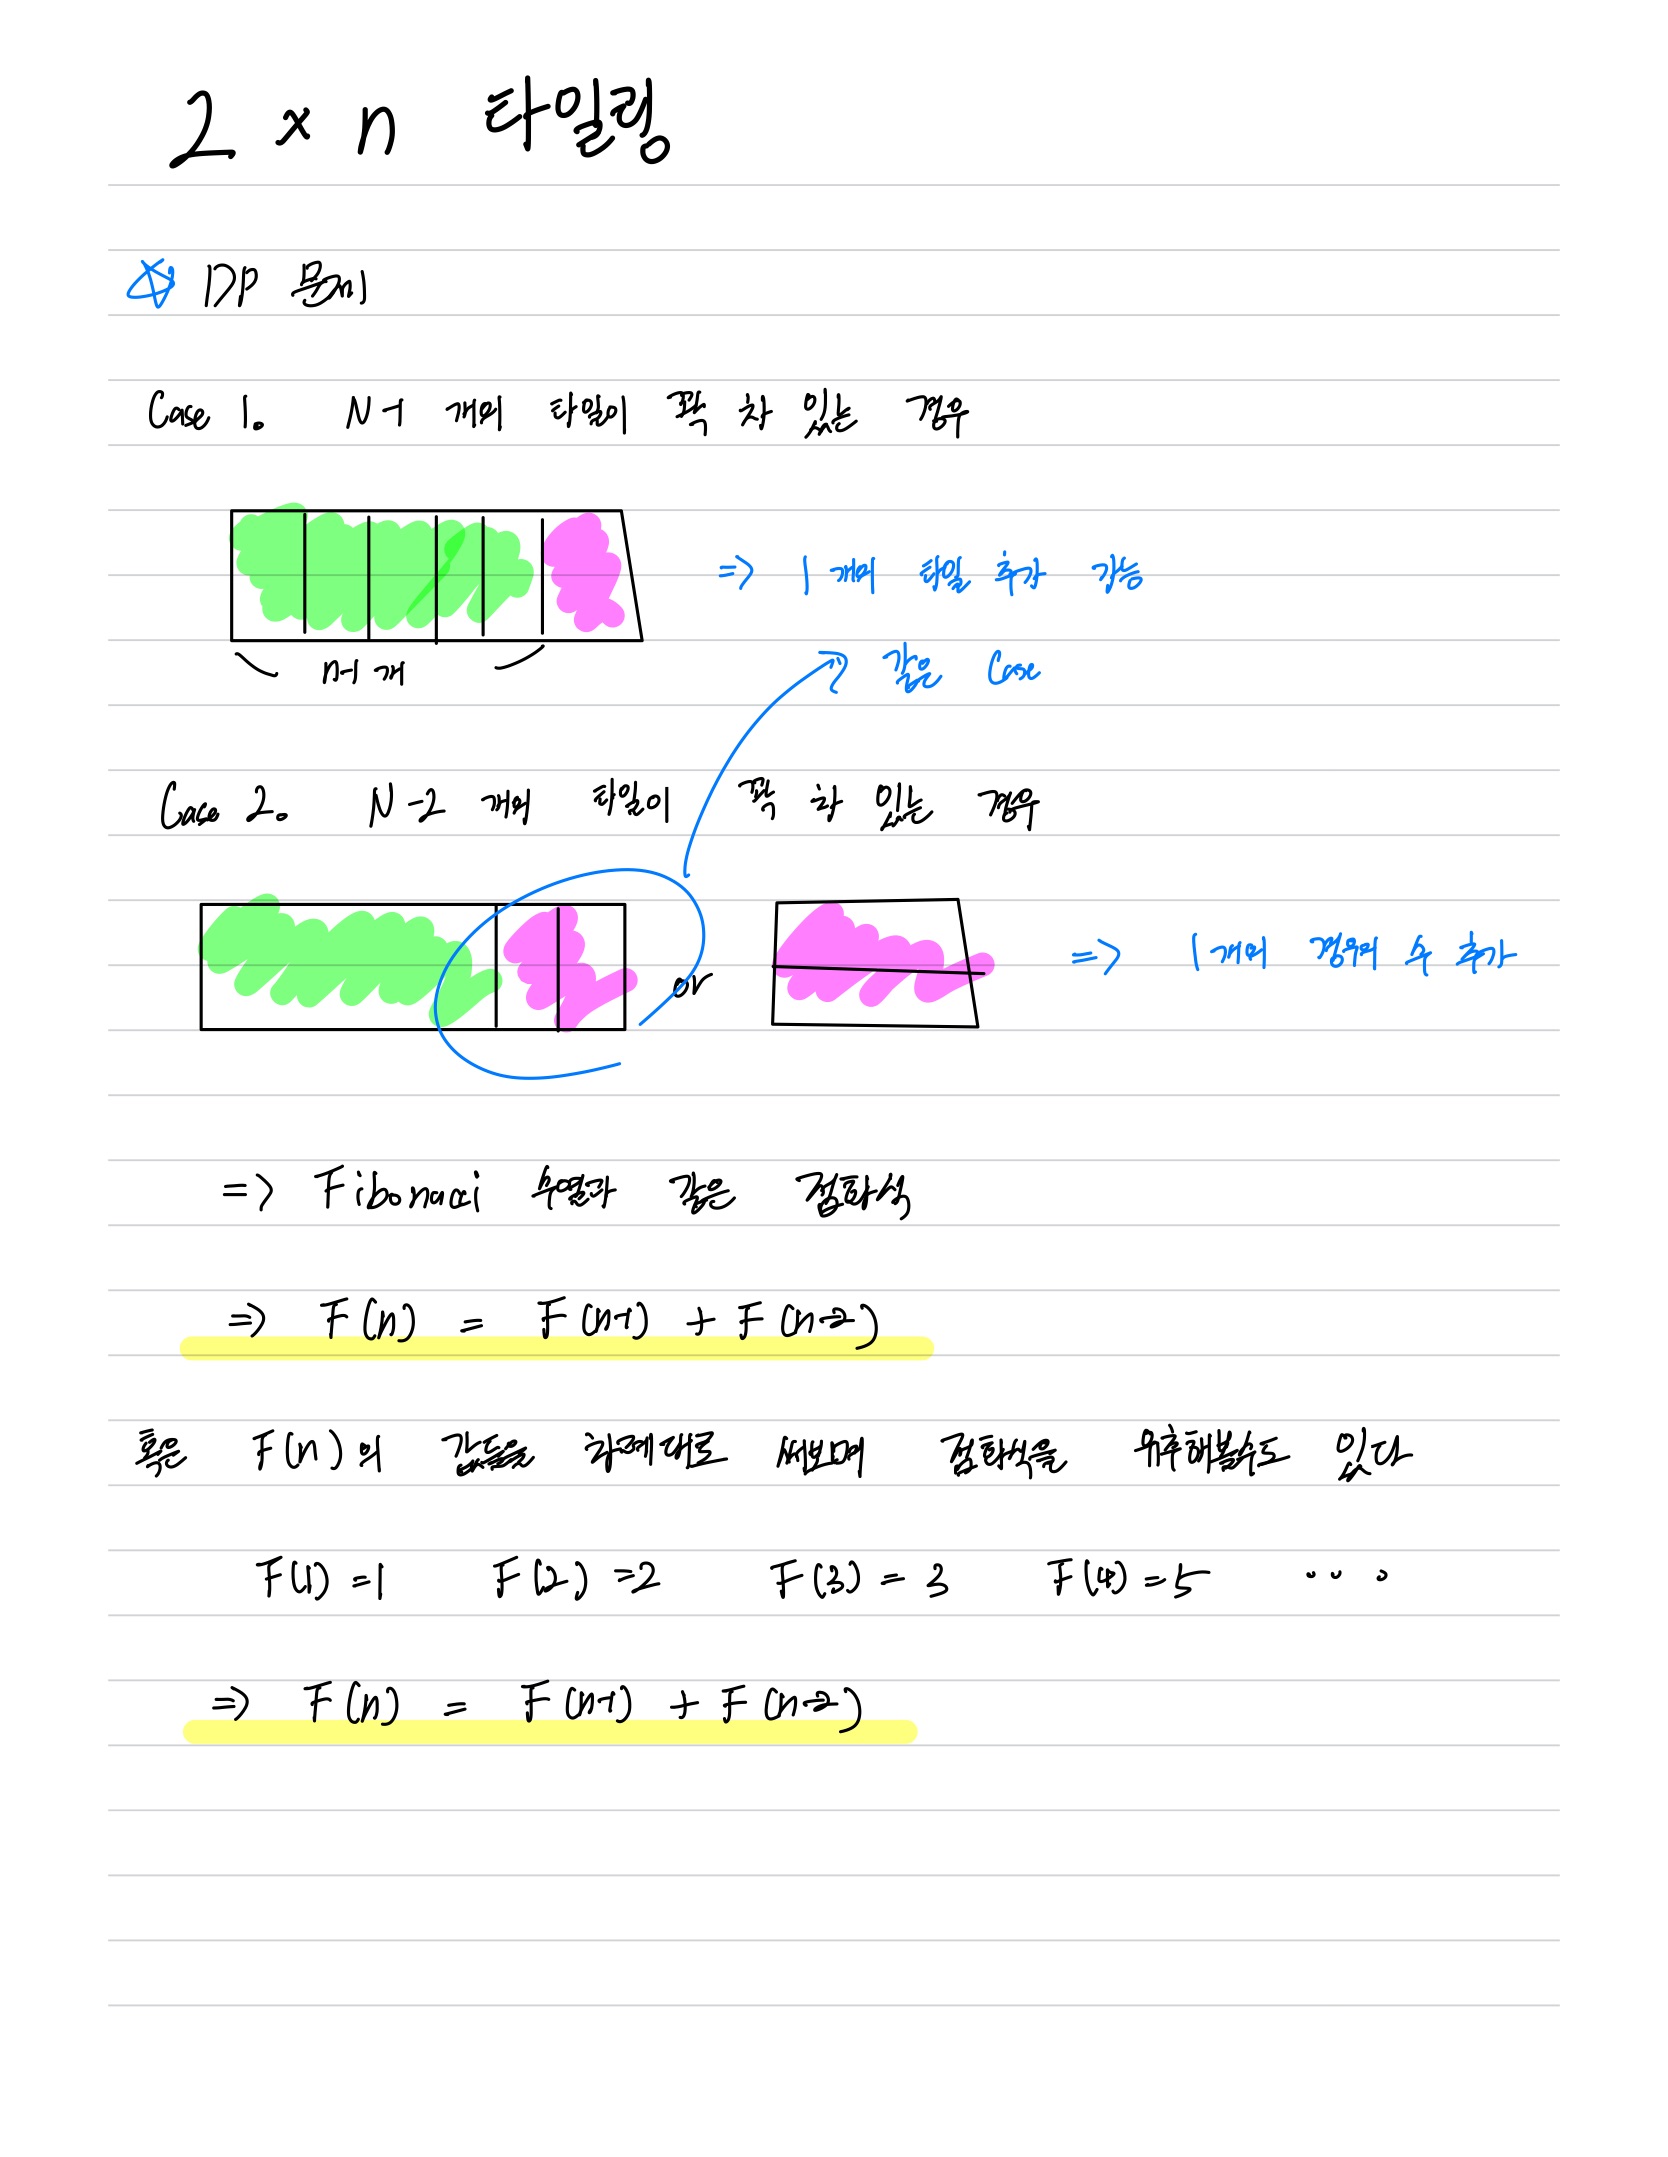 2 x n 타일링
DP 문제
Case 1. N-1 개의 타일이 꽉 차 있는 경우
=> 1개의 타일 추가 가능
n-1개
같은 Case
Case 2. N-2 개의 타일이 꽉 차 있는 경우
or
=> 1개의 경우의 수 추가
=> Fibonacci 수열과 같은 점화식
=> F(n) = F(n-1) + F(n-2)
혹은 F(n)의 값들을 차례대로 써보며 점화식을 유추해볼수도 있다
F(1) = 1 F(2) = 2 F(3) = 3 F(4) = 5 ...
=> F(n) = F(n-1) + F(n-2)